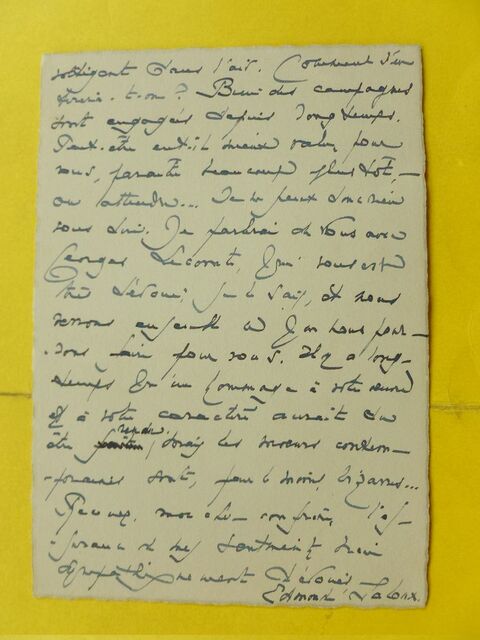 voltigent dans l'air. Comment s'en
tirera-t-on ? Bien des campagnes
sont engagées depuis longtemps.
Peut-être eut-il mieux valu, pour
vous, paraître beaucoup plus tôt, —
ou attendre... Je ne peux donc rien
vous dire. Je parlerai de vous avec
Georges Lecomte, qui vous est
très dévoué, je le sais, et nous
verrons ensemble ce que nous pour-
rons faire pour vous. Il y a long-
temps qu'un hommage à votre œuvre
et à votre caractère aurait dû
être rendu, mais les mœurs contem-
poraines sont, pour le moins, bizarres...
Recevez, mon cher confrère, l'as-
surance de mes sentiments bien
sympathiquement dévoués
Edmond Jaloux.